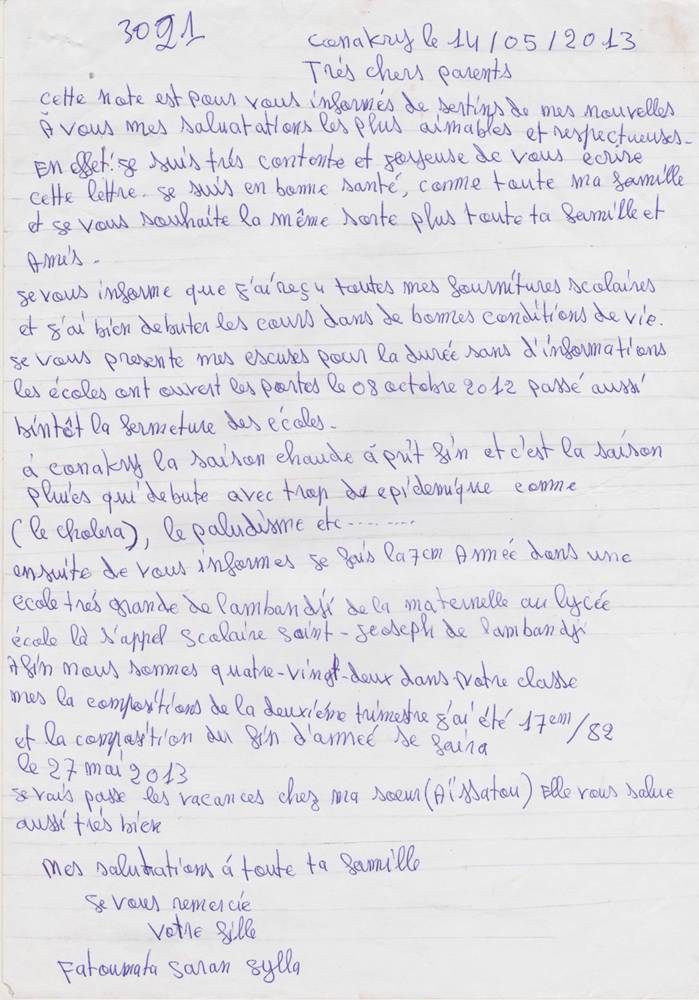 3091
Conakry le 14/05/2013
Très chers parents
Cette note est pour vous informés de sertins de mes nouvelles
À vous mes saluatations les plus aimables et respectueuses.
En effet: je suis très contente et joyeuse de vous écrire
cette lettre. je suis en bonne santé, comme toute ma famille
et je vous souhaite la même sorte plus toute ta famille et
Amis.
je vous informe que j'ai reçu toutes mes fournitures scolaires
et j'ai bien debuter les cours dans de bonnes conditions de vie.
je vous presente mes escuses pour la durée sans d'informations
les écoles ont ouvert les portes le 08 octobre 2012 passé aussi
bintôt la fermeture des écoles.
à conakry la saison chaude à prit fin et c'est la saison
pluies qui debute avec trop de epidemique comme
(le cholera), le paludisme etc........
ensuite de vous informes je fais la 7em Année dans une
ecole très grande de lambandji de la maternelle au lycée
école là s'appel scolaire saint-jeoseph de lambandji
Afin nous sommes quatre-vingt-deux dans notre classe
mes la compositions de la deuxième trimestre j'ai été 17em/82
et la composition du fin d'année se faira
le 27 mai 2013
je vais passe les vacances chez ma soeur (Aïssatou) Elle vous salue
aussi très bien
Mes salutations à toute ta famille
je vous remercie
Votre fille
Fatoumata Saran Sylla